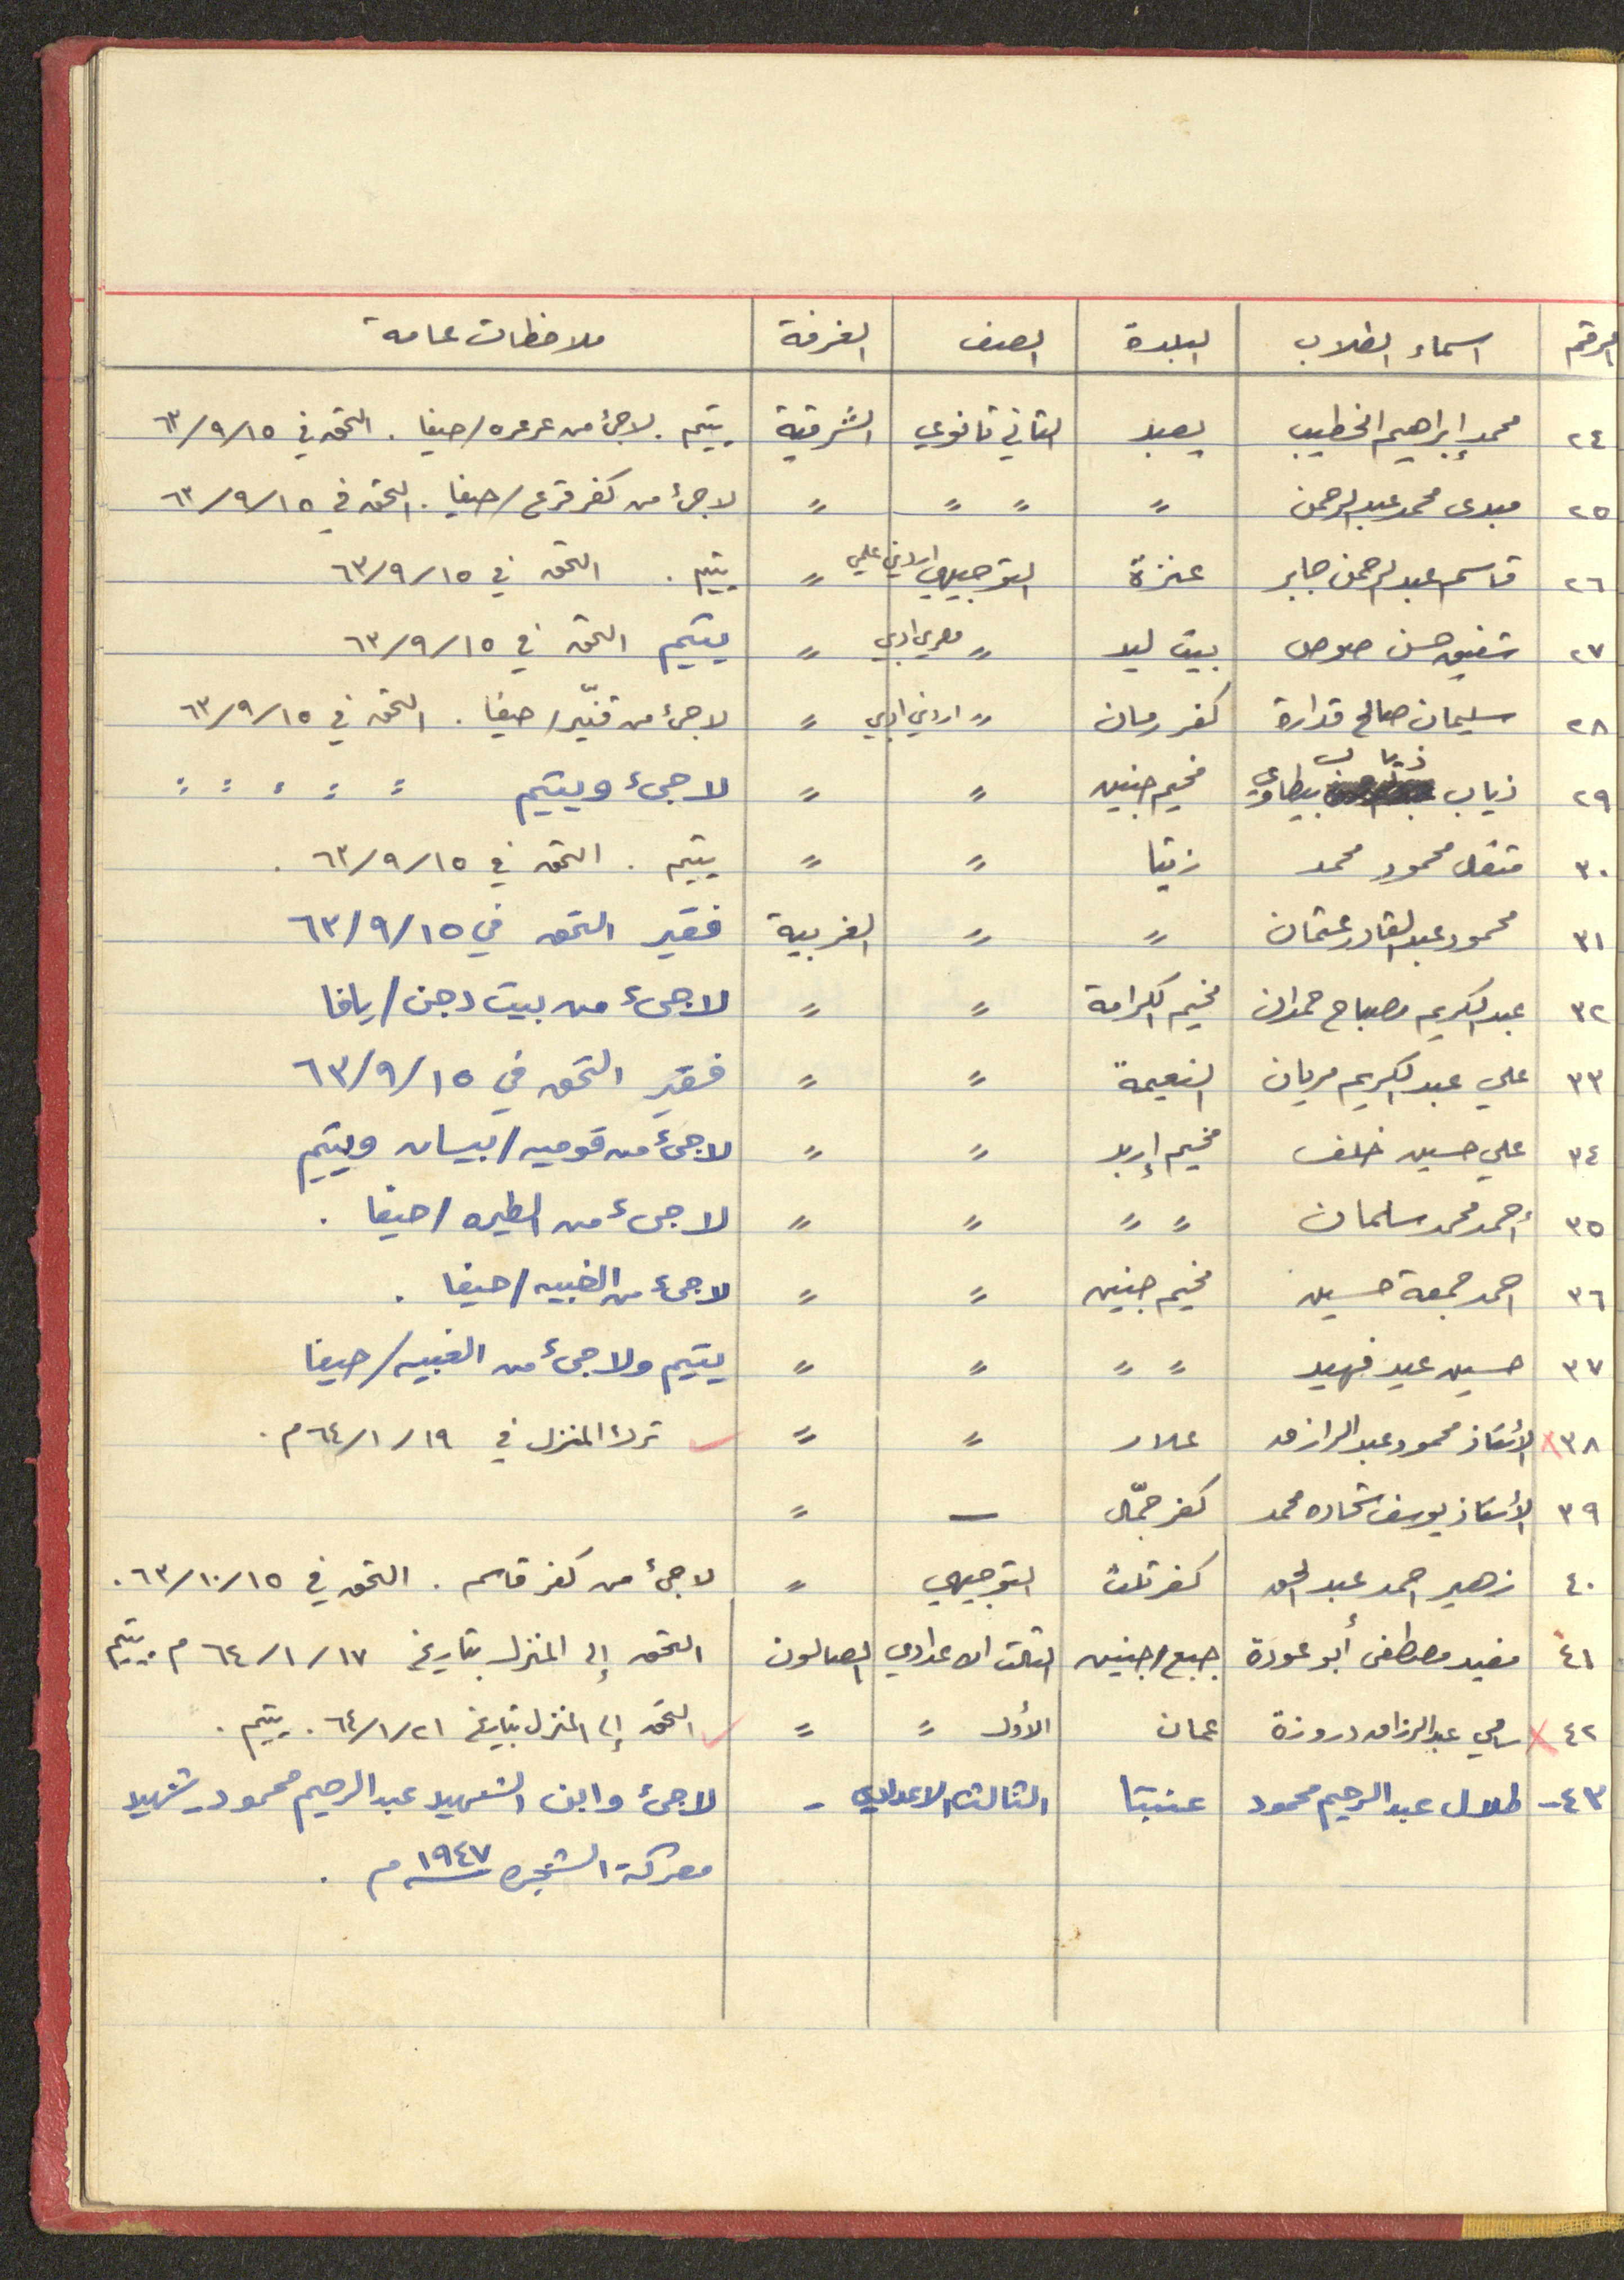 الرقم اسماء الطلاب البلدة الصف الغرفة ملاحظات عامة
٢٤ محمد إبراهيم الخطيب يعبد الثاني ثانوي الشرقية يتيم . لاجئ من عرعره / حيفا . التحق في ٦٣/٩/١٥
٢٥ مبدى محمد عبد الرحمن " " " " لاجئ من كفر قرع / حيفا . التحق في ٦٣/٩/١٥
٢٦ قاسم عبد الرحمن جابر عنزة التوجيهي اردني علمي " يتيم . التحق في ٦٣/٩/١٥
٢٧ شفيق حسن صوص بيت ليد " مصري ادبي " يتيم التحق في ٦٣/٩/١٥
٢٨ سليمان صالح قدارة كفر رمان " اردني ادبي " لاجئ من قنّير / حيفا . التحق في ٦٣/٩/١٥
٢٩ ذياب ذياب بيطاوي مخيم جنين " " لاجئ ويتيم " " " " "
٣٠ متقل محمود محمد زيتا " " يتيم . التحق في ٦٣/٩/١٥ .
٣١ محمود عبد القادر عثمان " " الغربية فقير التحق في ٦٣/٩/١٥
٣٢ عبد الكريم مصباح حمدان مخيم الكرامة " " لاجئ من بيت دجن / يافا
٣٣ علي عبد الكريم مريان النعيمة " " فقير التحق في ٦٣/٩/١٥
٣٤ علي حسين خلف مخيم إربد " " لاجئ من قوميه / بيسان ويتيم
٣٥ أحمد محمد سلمان " " " " لاجئ من الطيره / حيفا .
٣٦ احمد جمعة حسين مخيم جنين " " لاجئ من الغبيه / حيفا .
٣٧ حسين عيد فهيد " " " " يتيم ولاجئ من الغبيه / حيفا
٣٨ الأستاذ محمود عبد الرازق علار " " ترك المنزل في ٦٤/١/١٩ م .
٣٩ الأستاذ يوسف شحاده محمد كفر جمّال – "
٤٠ زهير احمد عبد الحق كفر ثلث التوجيهي " لاجئ من كفر قاسم . التحق في ٦٣/١٠/١٥ .
٤١ مفيد مصطفى أبو عودة جبع / جنين الثالث الاعدادي الصالون التحق إلى المنزل بتاريخ ٦٤/١/١٧ م . يتيم
٤٢ سامي عبد الرزاق دروزة عمان الأول " " التحق إلى المنزل بتاريخ ٦٤/١/٢١ . يتيم .
٤٣ – طلال عبد الرحيم محمود عنبتا الثالث الاعدادي - لاجئ وابن الشهيد عبد الرحيم محمود - شهيد
معركة الشجرة ١٩٤٧ م .